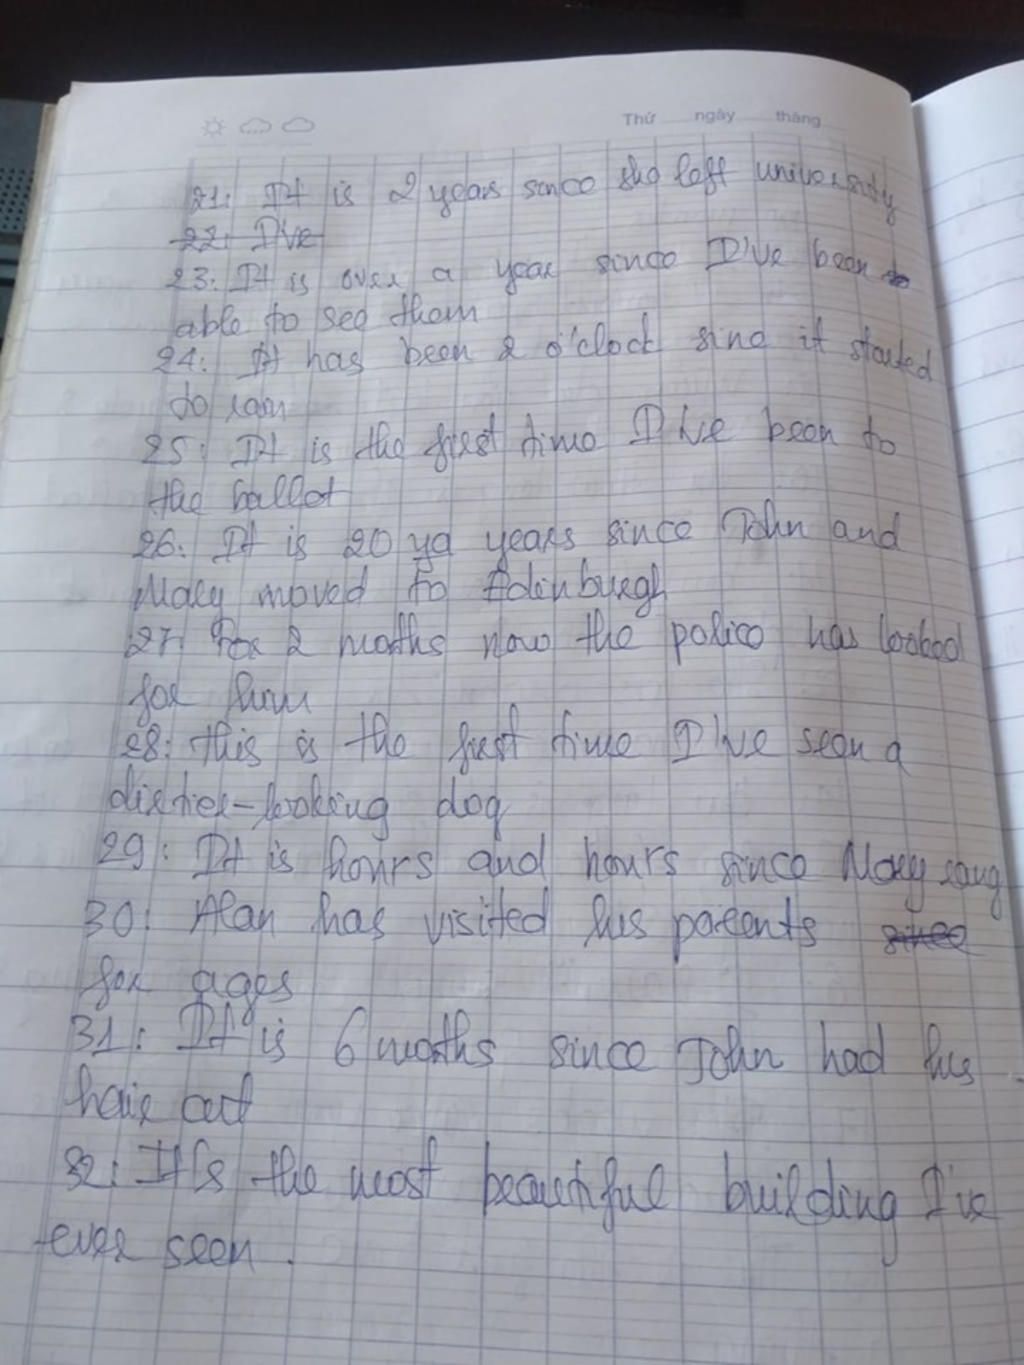 Thứ ngày tháng
21: It is 2 years since she left university
22: I've
23: It is over a year since I've been to
able to see them
24: It has been 2 o'clock sine it started
to rain
25: It is the first time I've been to
the ballet
26: It is 20 ya years since John and
Mary moved to Edinburgh
27: For 2 months now the police has looked
for him
28: this is the first time I've seen a
dirtier-looking dog
29: It is hours and hours since Mary sang
30: Alan has visited his parents since
for ages
31: It is 6 months since John had his
hair cut
32: It's the most beautiful building I've
ever seen.